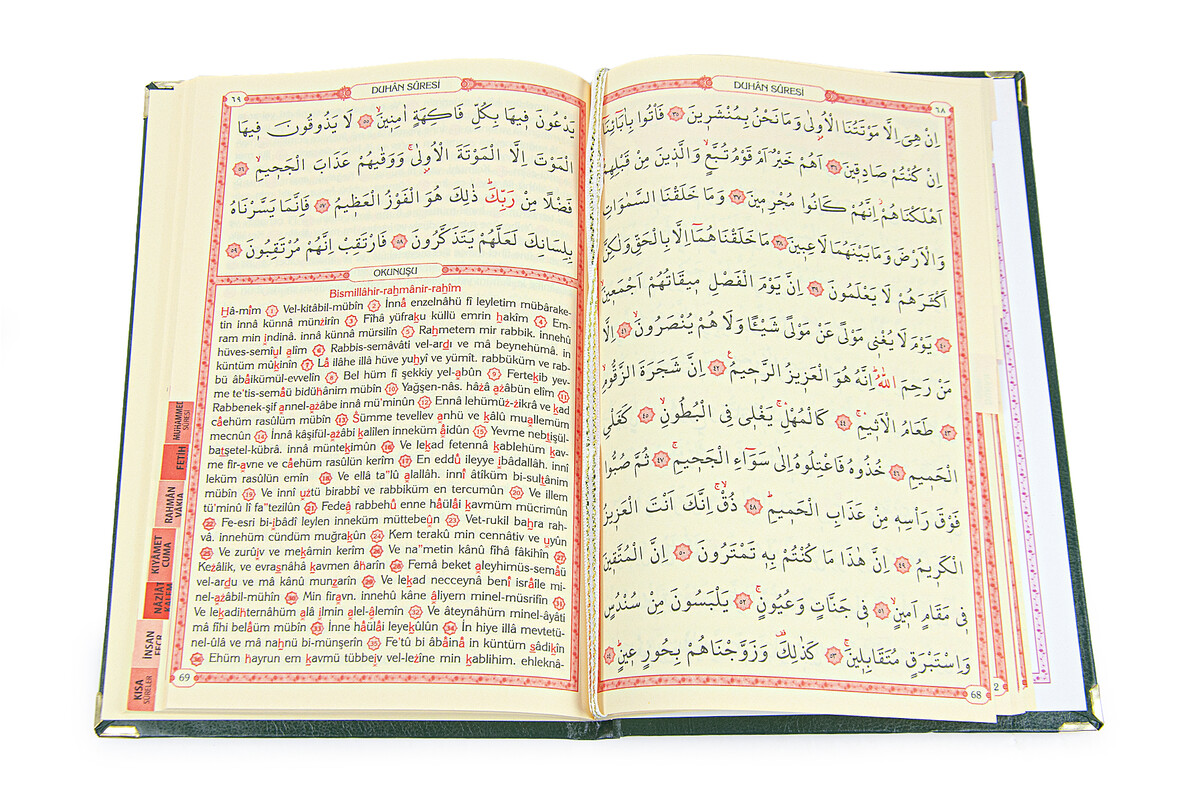 DUHÂN SÛRESİ
٦٨
اِنْ هِىَ اِلَّا مَوْتَتُنَا الْاُولٰى وَمَا نَحْنُ بِمُنْشَرِينَ ﴿٣٥﴾ فَأْتُوا بِاٰبَائِنَا
اِنْ كُنْتُمْ صَادِقِينَ ﴿٣٦﴾ اَهُمْ خَيْرٌ اَمْ قَوْمُ تُبَّعٍ وَالَّذِينَ مِنْ قَبْلِهِمْ
اَهْلَكْنَاهُمْ اِنَّهُمْ كَانُوا مُجْرِمِينَ ﴿٣٧﴾ وَمَا خَلَقْنَا السَّمٰوَاتِ
وَالْاَرْضَ وَمَا بَيْنَهُمَا لَاعِبِينَ ﴿٣٨﴾ مَا خَلَقْنَاهُمَا اِلَّا بِالْحَقِّ وَلٰكِنَّ
اَكْثَرَهُمْ لَا يَعْلَمُونَ ﴿٣٩﴾ اِنَّ يَوْمَ الْفَصْلِ مِيقَاتُهُمْ اَجْمَعِينَ
﴿٤٠﴾ يَوْمَ لَا يُغْنِى مَوْلًى عَنْ مَوْلًى شَيْئًا وَلَا هُمْ يُنْصَرُونَ ﴿٤١﴾ اِلَّا
مَنْ رَحِمَ اللّٰهُ اِنَّهُ هُوَ الْعَزِيزُ الرَّحِيمُ ﴿٤٢﴾ اِنَّ شَجَرَةَ الزَّقُّومِ
﴿٤٣﴾ طَعَامُ الْاَثِيمِ ﴿٤٤﴾ كَالْمُهْلِ يَغْلِى فِى الْبُطُونِ ﴿٤٥﴾ كَغَلْىِ
الْحَمِيمِ ﴿٤٦﴾ خُذُوهُ فَاعْتِلُوهُ اِلٰى سَوَاءِ الْجَحِيمِ ﴿٤٧﴾ ثُمَّ صُبُّوا
فَوْقَ رَأْسِهِ مِنْ عَذَابِ الْحَمِيمِ ﴿٤٨﴾ ذُقْ اِنَّكَ اَنْتَ الْعَزِيزُ
الْكَرِيمُ ﴿٤٩﴾ اِنَّ هٰذَا مَا كُنْتُمْ بِهِ تَمْتَرُونَ ﴿٥٠﴾ اِنَّ الْمُتَّقِينَ
فِى مَقَامٍ اَمِينٍ ﴿٥١﴾ فِى جَنَّاتٍ وَعُيُونٍ ﴿٥٢﴾ يَلْبَسُونَ مِنْ سُنْدُسٍ
وَاِسْتَبْرَقٍ مُتَقَابِلِينَ ﴿٥٣﴾ كَذٰلِكَ وَزَوَّجْنَاهُمْ بِحُورٍ عِينٍ ﴿٥٤﴾
68
2
DUHÂN SÛRESİ
٦٩
يَدْعُونَ فِيهَا بِكُلِّ فَاكِهَةٍ اٰمِنِينَ ﴿٥٥﴾ لَا يَذُوقُونَ فِيهَا
الْمَوْتَ اِلَّا الْمَوْتَةَ الْاُولٰى وَوَقٰيهُمْ عَذَابَ الْجَحِيمِ ﴿٥٦﴾
فَضْلًا مِنْ رَبِّكَ ذٰلِكَ هُوَ الْفَوْزُ الْعَظِيمُ ﴿٥٧﴾ فَاِنَّمَا يَسَّرْنَاهُ
بِلِسَانِكَ لَعَلَّهُمْ يَتَذَكَّرُونَ ﴿٥٨﴾ فَارْتَقِبْ اِنَّهُمْ مُرْتَقِبُونَ ﴿٥٩﴾
OKUNUŞU
Bismillâhir-rahmânir-rahîm
Hâ-mîm 1 Vel-kitâbil-mübîn 2 İnnâ enzelnâhü fî leyletim mübârake-
tin innâ künnâ münzirîn 3 Fîhâ yüfraku küllü emrin hakîm 4 Em-
ram min indinâ. innâ künnâ mürsilîn 5 Rahmetem mir rabbik. innehû
hüves-semîul alîm 6 Rabbis-semâvâti vel-ardı ve mâ beynehümâ. in
küntüm mûkınîn 7 Lâ ilâhe illâ hüve yuhyî ve yümît. rabbüküm ve rab-
bü âbâikümül-evvelîn 8 Bel hüm fî şekkiy yel-abûn 9 Fertekıb yev-
me te'tis-semâü bidühânim mübîn 10 Yağşen-nâs. hâzâ azâbün elîm 11
Rabbenek-şif annel-azâbe innâ mü'minûn 12 Ennâ lehümüz-zikrâ ve kad
câehüm rasûlüm mübîn 13 Sümme tevellev anhü ve kâlû muallemüm
mecnûn 14 İnnâ kâşifül-azâbi kalîlen inneküm âidûn 15 Yevme nebtışül-
batşetel-kübrâ. innâ müntekımûn 16 Ve lekad fetennâ kablehüm kav-
me fir-avne ve câehüm rasûlün kerîm 17 En eddû ileyye ıbâdallâh. innî
leküm rasûlün emîn 18 Ve ellâ ta"lû alallâh. innî âtîküm bi-sultânim
mübîn 19 Ve innî uztü birabbî ve rabbiküm en tercumûn 20 Ve illem
tü'minû lî fa"tezilûn 21 Fedeâ rabbehû enne hâülâi kavmüm mücrimûn
22 Fe-esri bi-ıbâdî leylen inneküm müttebeûn 23 Vet-rukil bahra rah-
vâ. innehüm cündüm muğrakûn 24 Kem terakû min cennâtiv ve uyûn
25 Ve zurûıv ve mekâmin kerîm 26 Ve na"metin kânû fîhâ fâkihîn 27
Kezâlik, ve evrasnâhâ kavmen âharîn 28 Femâ beket aleyhimüs-semâü
vel-ardu ve mâ kânû munzarîn 29 Ve lekad necceynâ benî isrâîle mi-
nel-azâbil-mühîn 30 Min firavn. innehû kâne âliyem minel-müsrifîn 31
Ve lekadihternâhüm alâ ılmin alel-âlemîn 32 Ve âteynâhüm minel-âyâti
mâ fîhi belâüm mübîn 33 İnne hâülâi leyekûlûn 34 İn hiye illâ mevtetü-
nel-ûlâ ve mâ nahnü bi-münşerîn 35 Fe'tû bi âbâinâ in küntüm sâdikîn
36 Ehüm hayrun em kavmü tübbeıv vel-lezîne min kablihim. ehleknâ-
69
MUHAMMED
SÛRESİ
FETİH
RAHMÂN
VÂKIA
KIYAMET
CUMA
NÂZİÂT
İNSAN
FECR
KISA
SÛRELER